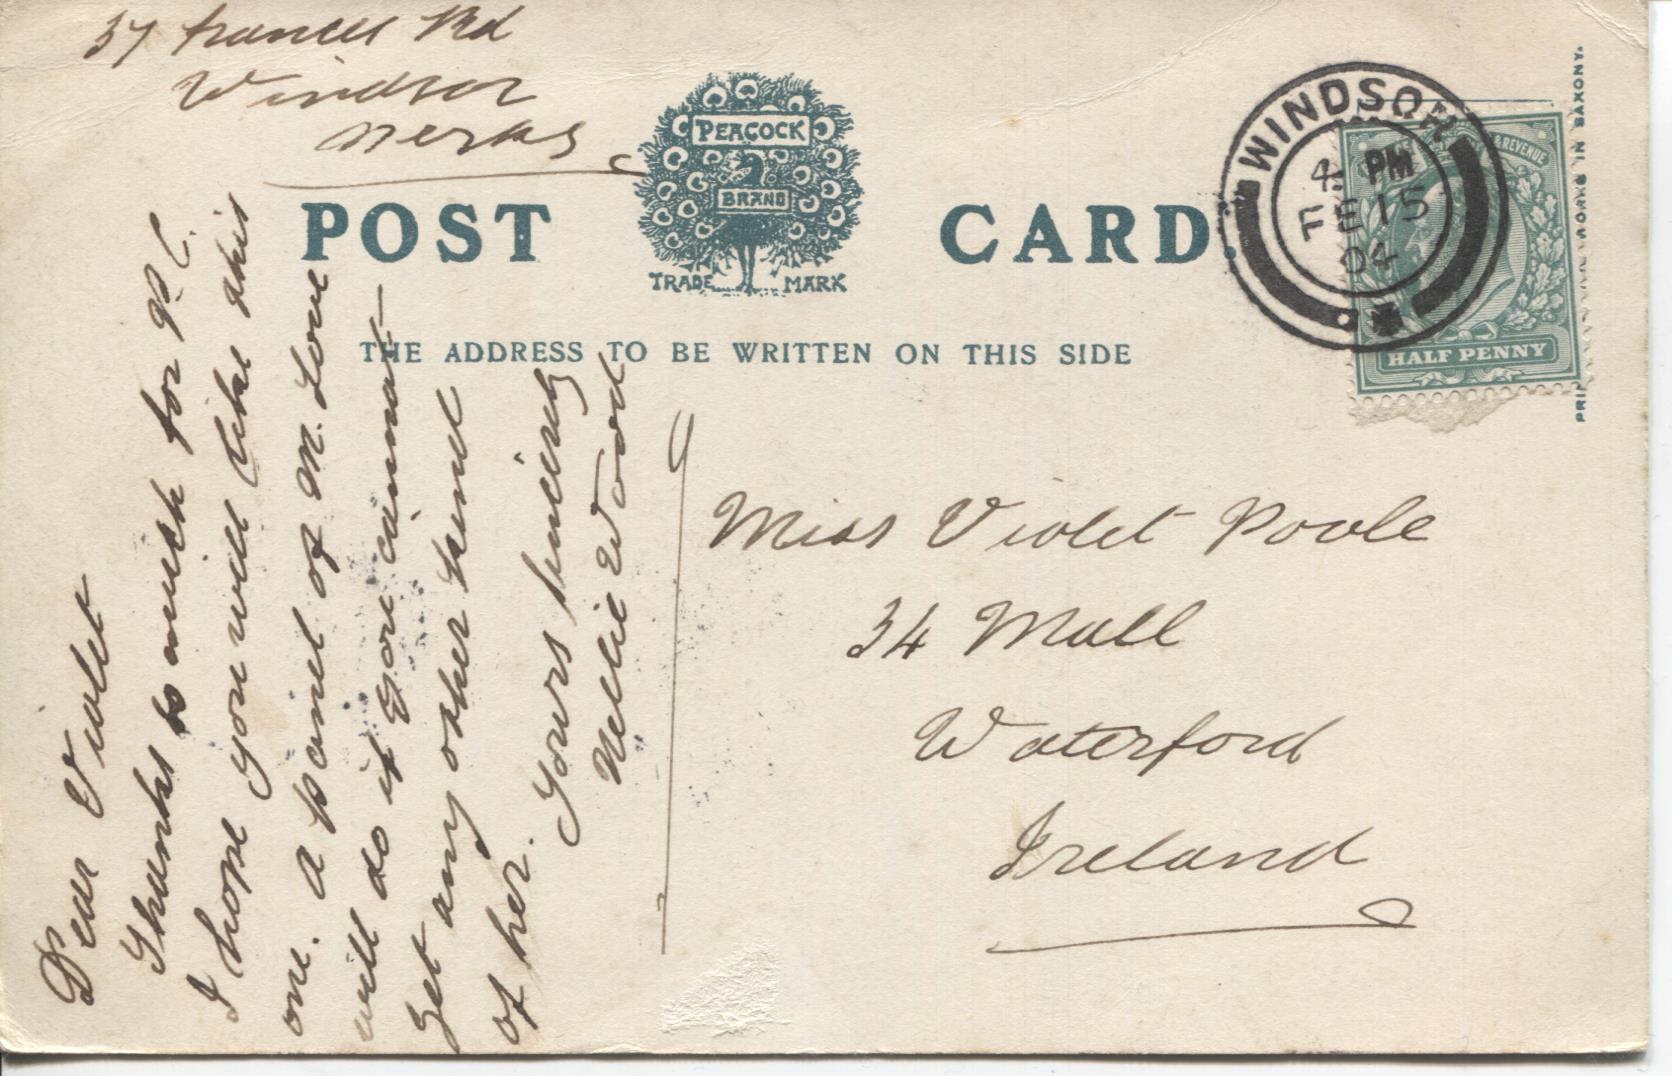 37 Frances Rd
Windsor
Berks
PEACOCK
BRAND
TRADE MARK
POST CARD.
THE ADDRESS TO BE WRITTEN ON THIS SIDE
WINDSOR
4 PM
FE 15
04
& REVENUE
HALF PENNY
IN SAXONY.
Dear Violet
Thanks so much for P. C.
I hope you will like this
one. A panel of M. Love
will do if you cannot
get any other kind
of her.
Yours sincerely
Nellie Wood
Miss Violet Poole
34 Mall
Waterford
Ireland